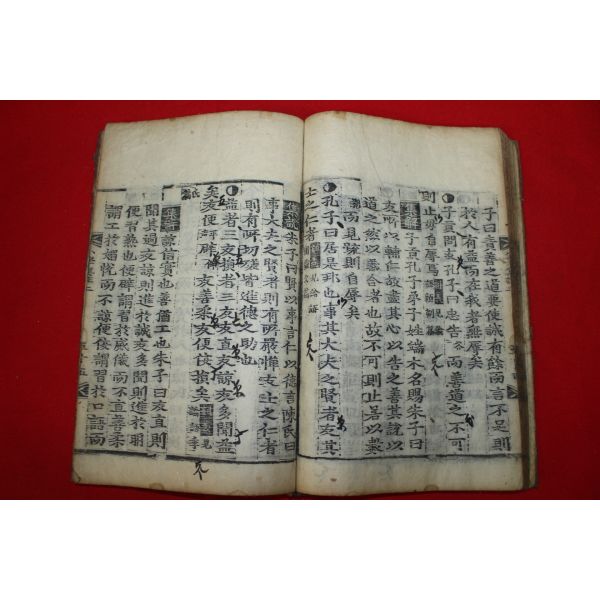 子曰責善之道要使誠有餘而言不足則
於人有益而在我者無辱矣
子貢問友孔子曰忠告而善道之不可
則止毋自辱焉
集解子貢孔子弟子姓端木名賜朱子曰
友所以輔仁故盡其心以告之善其說以
道之然以義合者也故不可則止若以數
而見疏則自辱矣
孔子曰居是邦也事其大夫之賢者友其
士之仁者
集說朱子曰賢以事言仁以德言陳氏曰
事大夫之賢者則有所嚴憚友士之仁者
則有所切磋皆進德之助也
益者三友損者三友友直友諒友多聞益
矣友便辟友善柔友便佞損矣
集解諒信實也善猶工也朱子曰友直則
聞其過友諒則進於誠友多聞則進於明
便習熟也便辟謂習於威儀而不直善柔
謂工於媚悅而不諒便佞謂習於口語而